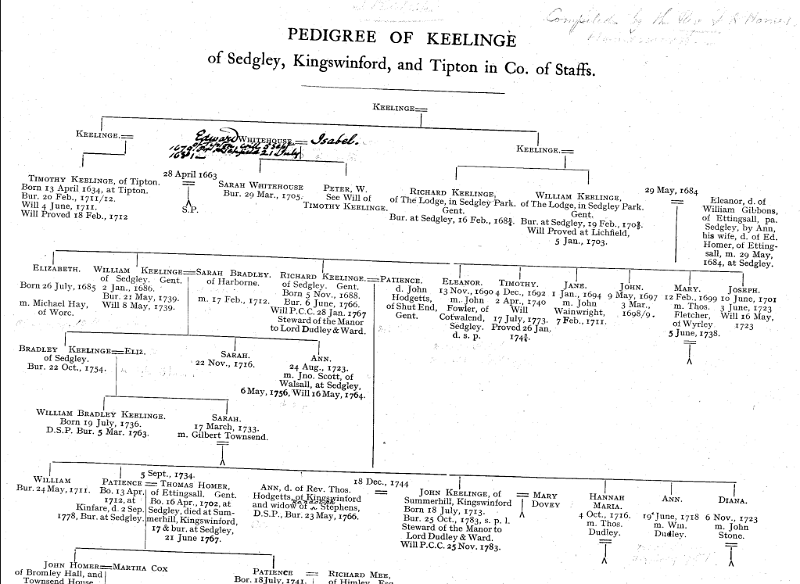 Compiled by the Rev. S. Homer.
PEDIGREE OF KEELINGE
of Sedgley, Kingswinford, and Tipton in Co. of Staffs.
KEELINGE
KEELINGE.
Edward WHITEHOUSE Isabel.
KEELINGE.
TIMOTHY KEELINGE, of Tipton.
Born 13 April 1634, at Tipton.
Bur. 20 Feb., 1711/12.
Will 4 June, 1711.
Will Proved 18 Feb., 1712
28 April 1663
S.P.
SARAH WHITEHOUSE
Bur. 29 Mar., 1705.
PETER, W.
See Will of
TIMOTHY KEELINGE.
RICHARD KEELINGE,
of The Lodge, in Sedgley Park.
Gent.
Bur. at Sedgley, 16 Feb.,
WILLIAM KEELINGE,
of The Lodge, in Sedgley Park.
Gent.
Bur. at Sedgley, 19 Feb.,
Will Proved at Lichfield,
5 Jan., 1703.
29 May, 1684
Eleanor, d. of
William Gibbons,
of Ettingsall, pa.
Sedgley, by Ann,
his wife, d. of Ed.
Homer, of Etting-
sall, m. 29 May,
1684, at Sedgley.
ELIZABETH.
Born 26 July, 1685
m. Michael Hay,
of Worc.
WILLIAM KEELINGE
of Sedgley. Gent.
2 Jan., 1686.
Bur. 21 May, 1739.
Will 8 May, 1739.
SARAH BRADLEY.
of Harborne.
m. 17 Feb., 1712.
RICHARD KEELINGE.
of Sedgley. Gent.
Born 5 Nov., 1688.
Bur. 6 June, 1766.
Will P.C.C. 28 Jan. 1767
Steward of the Manor
to Lord Dudley & Ward.
PATIENCE.
d. John
Hodgetts,
of Shut End,
Gent.
ELEANOR.
13 Nov., 1690
m. John
Fowler, of
Cotwalend,
Sedgley.
d. s. p.
TIMOTHY.
4 Dec., 1692
2 Apr., 1740
Will
17 July, 1773.
Proved 26 Jan.
JANE.
1 Jan., 1694
m. John
Wainwright,
7 Feb., 1711.
JOHN.
9 May, 1697
3 Mar.,
1698/9.
MARY.
12 Feb., 1699
m. Thos.
Fletcher,
of Wyrley
5 June, 1738.
JOSEPH.
10 June, 1701
3 June, 1723
Will 16 May,
1723
BRADLEY KEELINGE
of Sedgley.
Bur. 22 Oct., 1754.
ELIZ.
SARAH.
22 Nov., 1716.
ANN.
24 Aug., 1723.
m. Jno. Scott, of
Walsall, at Sedgley,
6 May, 1756, Will 16 May, 1764.
WILLIAM BRADLEY KEELINGE.
Born 19 July, 1736.
D.S.P. Bur. 5 Mar. 1763.
SARAH.
17 March, 1733.
m. Gilbert Townsend.
WILLIAM
Bur. 24 May, 1711.
PATIENCE
Bo. 13 Apr.
1712, at
Kinfare, d. 2 Sep.
1778, Bur. at Sedgley.
5 Sept., 1734.
THOMAS HOMER,
of Ettingsall. Gent.
Bo. 16 Apr., 1702, at
Sedgley, died at Sum-
merhill, Kingswinford,
17 & bur. at Sedgley,
21 June 1767.
ANN, d. of Rev. Thos.
Hodgetts, of Kingswinford
and widow of Stephens,
D.S.P., Bur. 23 May, 1766.
18 Dec., 1744
JOHN KEELINGE, of
Summerhill, Kingswinford
Born 18 July, 1713.
Bur. 25 Oct., 1783, s. p. l.
Steward of the Manor to
Lord Dudley & Ward.
Will P.C.C. 25 Nov. 1783.
MARY
DOVEY
HANNAH
MARIA.
4 Oct., 1716.
m. Thos.
Dudley.
ANN.
19 June, 1718
m. Wm.
Dudley.
DIANA.
6 Nov., 1723
m. John
Stone.
JOHN HOMER
of Bromley Hall, and
Townsend House
MARTHA COX
PATIENCE
Bor. 18 July, 1741.
RICHARD MEE,
of Himley, Esq.